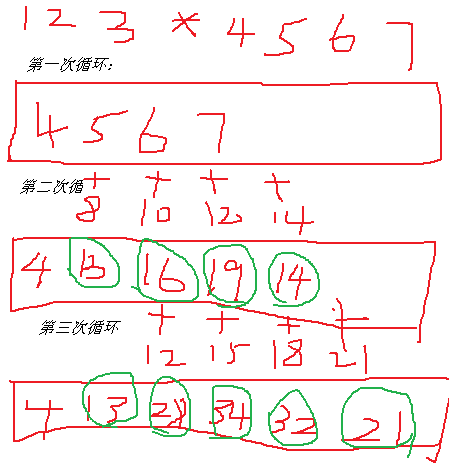 123*4567
第一次循环：
4 5 6 7
+ + + +
第二次循 8 10 12 14
4 13 16 19 14
第三次循环 + + + +
12 15 18 21
4 13 28 34 32 21